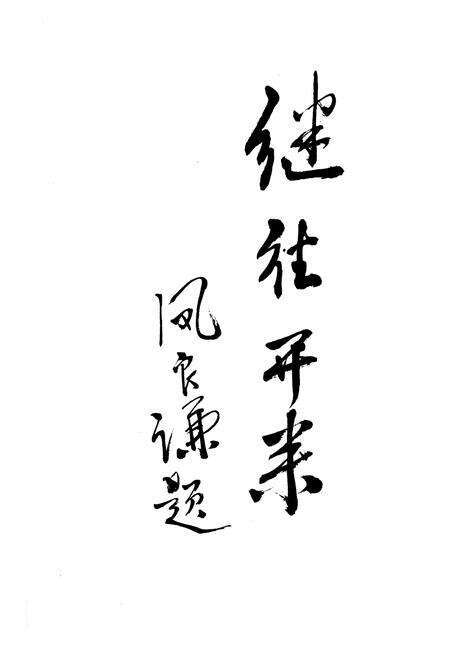 继往开来
凤良谦题